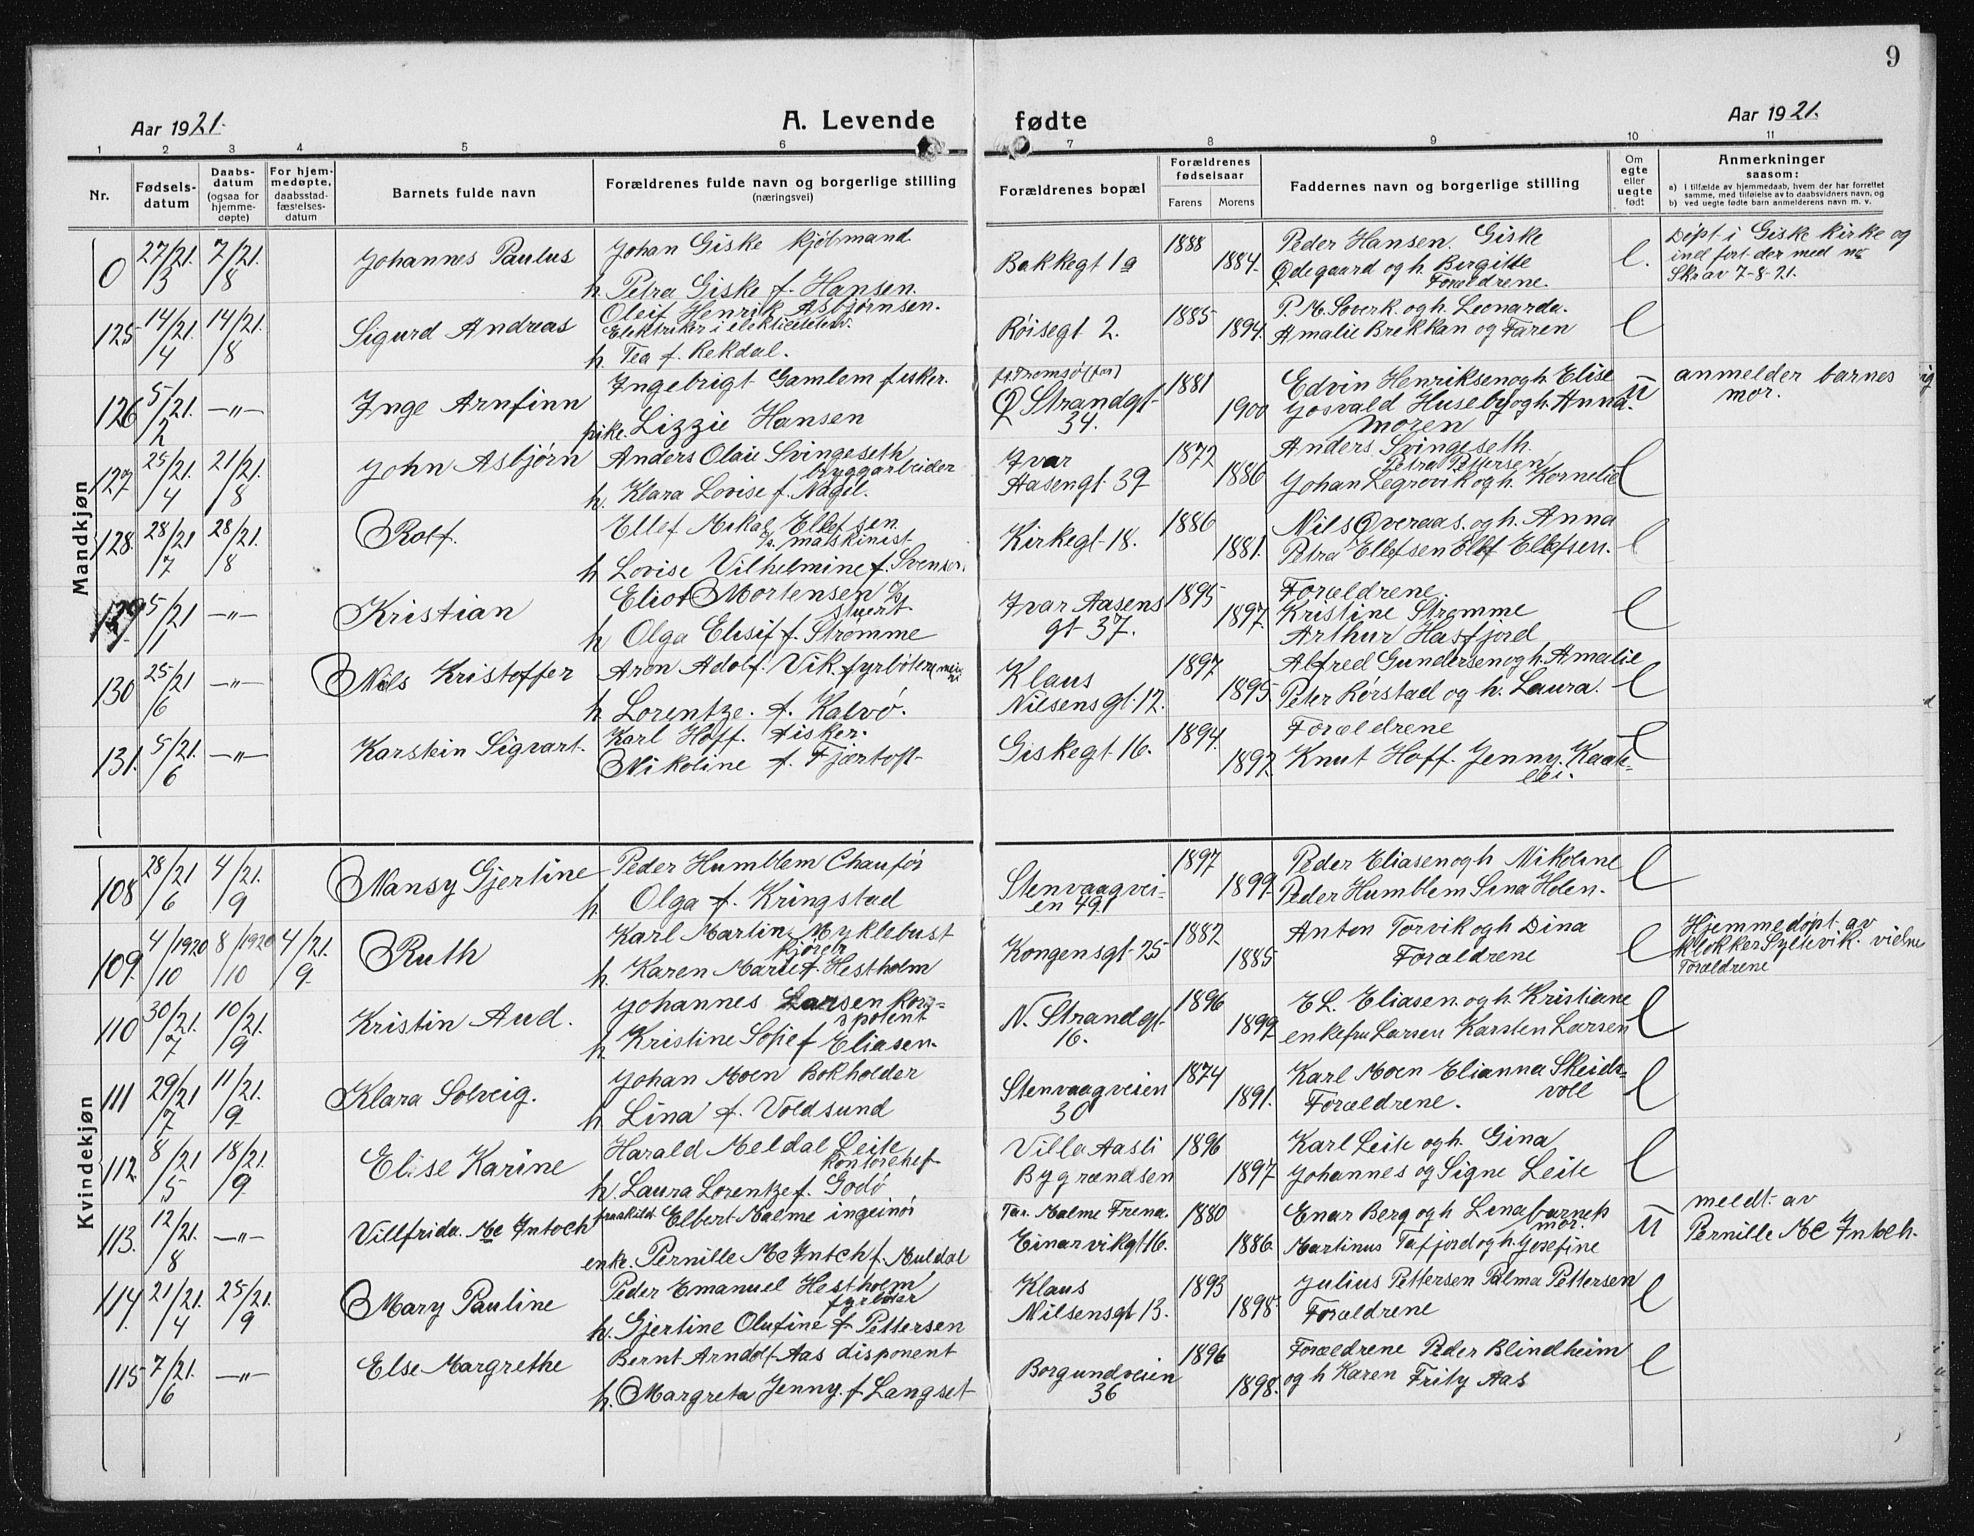 9
Aar 1921.
A. Levende fødte
Aar 1921.
1 2 3 4 5 6 7 8 9 10 11
Nr.
Fødsels-
datum
Daabs-
datum
(ogsaa for
hjemme-
døpte)
For hjem-
medøpte,
daabsstad-
fæstelses-
datum
Barnets fulde navn
Forældrenes fulde navn og borgerlige stilling
(næringsvei)
Forældrenes bopæl
Forældrenes
fødselsaar
Farens Morens
Faddernes navn og borgerlige stilling
Om
egte
eller
uegte
født
Anmerkninger
saasom:
a) I tilfælde av hjemmedaab, hvem der har forrettet
samme, med tilføielse av to daabsvidners navn, og
b) ved uegte fødte barn anmelderens navn m. v.
Mandkjøn
0 27/21. 3 7/21. 8 Johannes Paulus
Johan Giske kjøbmand
h. Petra Giske f. Hansen.
Bakkegt 1a 1888 1884.
Peder Hansen. Giske
Ødegaard og h. Bergitte
Forældrene.
e.
Døpt i Giske kirke og
ind ført der med no
Skr av 7-8-21.
125 14/21. 4 14/21. 8 Sigurd Andreas
Oleif Henrik Asbjørnsen.
Elektriker i
h. Tea f. Rekdal.
Røisegt 2. 1885 1894.
P. M. Soverk. og h. Leonarda.
Amalie Brekkan og Faren
e
126 5/21. 2 -"- Inge Arnfinn
Ingebrigt Gamlem fisker.
pike. Lizzie Hansen
f. Tromsø (for)
Ø Strandgt
34.
1881 1900
Edvin Henriksen og h. Elise
Gosvald Huseby og h. Anna.
Moren
u
anmelder barnes
mor.
127 25/21. 4 21/21. 8 John Asbjørn
Anders Olaii Svingeseth
byggarbeider
h. Klara Lovise f. Nagel.
Ivar
Aasengt 39
1872 1886
Anders Svingeseth.
Petra Pettersen
Johan Legrovik og h. Kornelie
e
128. 28/21 7 28/21. 8 Rolf.
Ellef Mikal Ellefsen
maskinist
h Lovise Vilhelmine f. Svensen.
Kirkegt 18. 1886 1881.
Nils Øveraas. og h. Anna
Petra Ellefsen Ellef Ellefsen.
e
129 5/21 1 -"- Kristian
Eliot Mortensen
stuert
h Olga Elisif f. Strømme
Ivar Aasens
gt 37.
1895 1897.
Forældrene.
Kristine Strømme
Arthur Hasfjord
e
130 25/21 6 -"- Nils Kristoffer
Aron Adolf. Vik. fyrbøter
h Lorentze. f. Kalvø.
Klaus
Nilsens gt. 12.
1897 1895.
Alfred Gundersen og h. Amalie
Peter Rørstad og h. Laura.
e
131. 5/21. 6 -"- Karstein Sigvart.
Karl Hoff. fisker.
Nikoline f. Fjørtoft
Giskegt 16. 1894. 1892.
Forældrene
Knut Hoff. Jenny.
e
Kvindekjøn
108 28/21 6 4/21. 9 Nansy Gjertine
Peder Humblem Chaufør
h. Olga f. Kringstad
Stenvaagvei-
en 49
1897 1899.
Peder Eliasen og h Nikoline
Peder Humblem Lina Holen.
e
109. 4/1920 10 8/1920 10 4/21. 9 Ruth
Karl Martin Myklebust
kjører
h. Karen Marie f. Hestholm
Kongensgt 25 1882 1885
Anton Torvik og h Dina
Forældrene
e
Hjemmedøpt av
Klokker Syltevik. vidne
Forældrene
110 30/21. 7 10/21 9 Kristin Aud.
Johannes Larsen
h. Kristine Sofie f Eliasen.
N. Strandgt.
16.
1896 1899
E L. Eliasen. og h. Kristiane
enkefru Larsen Karsten Larsen
e
111 29/21 7 11/21. 9 Klara Solveig.
Johan Moen Bokholder
h Lina f. Voldsund
Stenvaagveien
30
1874 1891.
Karl Moen Elianna Skeids-
voll
Forældrene.
e
112. 8/21 5 18/21. 9 Elise Karine
Harald Meldal Leite
kontorchef
h. Laura Lorentze f. Godø
Villa Aasli
Bygrændsen
1896 1897
Karl Leite og h. Gina
Johannes og Signe Leite
e
113. 12/21. 8 -"- Villfrida. Mc Intoch
fraskildt Elbert Malme ingeinør
enke. Pernille Mc Intch f. Muldal
Far. Malme Frena.
Einarvikgt 16.
1880 1886
Enar Berg og h Lina barnets
mor.
Martinus Tafjord og h. Josefine
u
meldt av
Pernille Mc Intoch.
114. 21/21. 4 25/21. 9 Mary Pauline
Peder Emanuel Hestholm
fyrbøter
h. Gjertine Olufine f Pettersen
Klaus
Nilsensgt 13.
1893 1898
Julius Pettersen Palma Pettersen
Forældrene
e
115 7/21 6 -"- Else Margrethe
Bernt Arndolf Aas disponent
h. Margreta Jenny f Langset
Borgundveien
36
1896 1898.
Forældrene Peder Blindheim
og h Karen Frity Aas
e